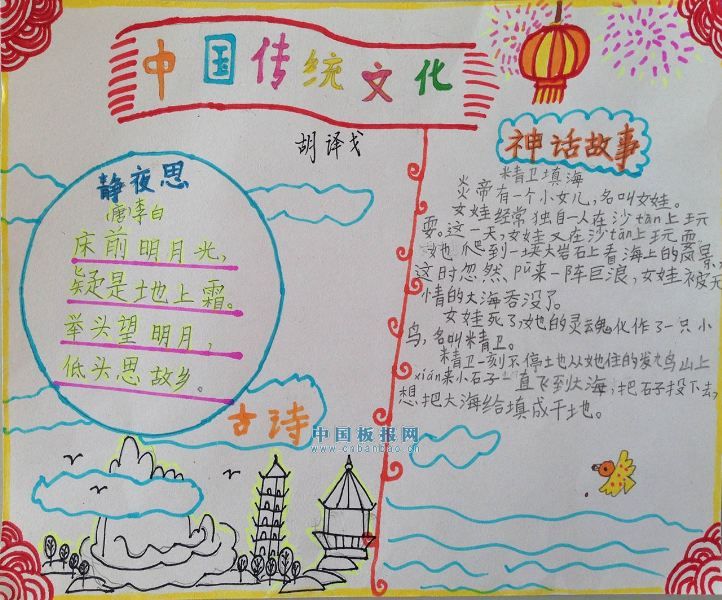 中国传统文化
胡译戈
静夜思
唐李白
床前明月光，
疑是地上霜。
举头望明月，
低头思故乡。
古诗
神话故事
精卫填海
炎帝有一个小女儿，名叫女娃。
女娃经常独自一人在沙tān上玩
耍。这一天，女娃又在沙tān上玩耍，
她爬到一块大岩石上看海上的风景，
这时忽然pū来一阵巨浪，女娃被无
情的大海吞没了。
女娃死了，她的灵魂化作了一只小
鸟，名叫精卫。
精卫一刻不停土也从她住的发九鸟山上
xián来小石子一直飞到大海，把石子投下去，
想把大海给填成干地。
中国板报网
www.cnbanbao.cn